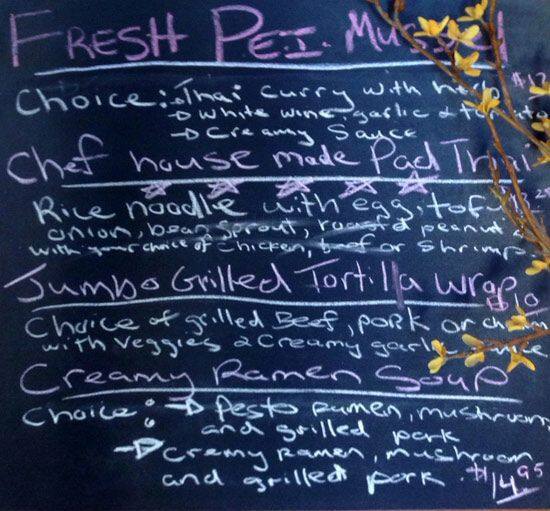 FRESH P.E.I. MUSSEL
Choice: Thai curry with herb $17
→ White wine, garlic & tomato
→ Creamy Sauce
Chef house made Pad Thai
Rice noodle with egg, tofu
onion, bean sprout, roasted peanut &
with your choice of chicken, beef or shrimp
Jumbo Grilled Tortilla Wrap
$10
Choice of grilled Beef, pork or
with veggies & Creamy garlic
Creamy Ramen Soup
Choice: → Pesto Ramen, mushroom
and grilled pork
→ Creamy Ramen, mushroom
and grilled pork. $14.95